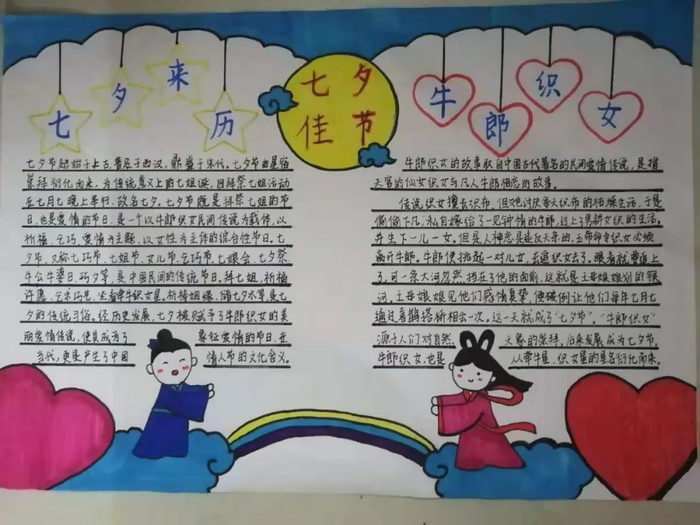 七夕来历
七夕
佳节
牛郎织女
七夕节始于上古,普及于西汉,鼎盛于宋代,七夕节由星宿
崇拜衍化而来,为传统意义上的七姐诞,因拜祭七姐活动
在七月七晚上举行,故名七夕。七夕节既是拜祭七姐的节
日,也是爱情的节日,是一个以牛郎织女民间传说为载体,以
祈福、乞巧、爱情为主题,以女性为主体的综合性节日。七
夕节,又称七巧节、七姐节、女儿节、乞巧节、七娘会、七夕祭
牛公牛婆日、巧夕等,是中国民间的传统节日。拜七姐,祈福
许愿、乞求巧艺、坐看牵牛织女星、祈祷姻缘、储七夕水等,是七
夕的传统习俗。经历史发展,七夕被赋予了牛郎织女的美
丽爱情传说,使其成为了 象征爱情的节日,在
当代,更是产生了中国 情人节的文化含义。
牛郎织女的故事取自中国古代著名的民间爱情传说,是
天宫的仙女织女与凡人牛郎相恋的故事。
传说织女擅长织布,但她讨厌春天织布的枯燥生活,于是
偷偷下凡,私自嫁给了一见钟情的牛郎,过上了男耕女织的生活,
并生下一儿一女。但是人神恋是违反天条的,王母命令织女必须
离开牛郎。牛郎便挑起一对儿女,去追织女去了。眼看就要追上
了,可一条大河忽然挡在了他的面前,这就是王母娘娘划的银
河。王母娘娘见他们感情真挚,便破例让他们每年七月七
通过喜鹊搭桥相会一次。这一天就成了“七夕节”。“牛郎织女”
源于人们对自然 天象的崇拜,后来发展成为七夕节。
牛郎织女,也是 从牵牛星、织女星的星名衍化而来。